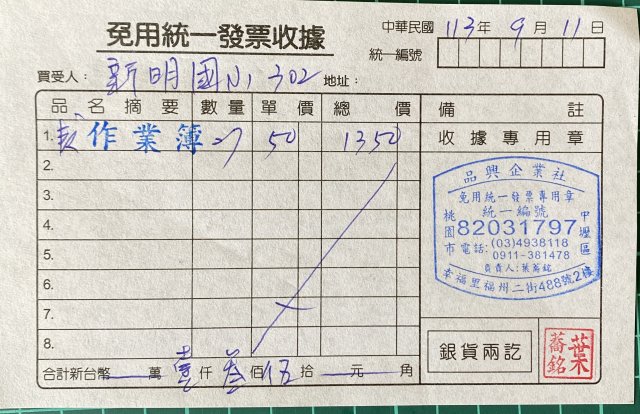 免用統一發票收據
中華民國 113年 9月 11日
統一編號
買受人： 新明國小 302 地址：
品名摘要 數量 單價 總價 備註
1. 數作業簿 27 50 1350 收據專用章
2.
3.
4.
5.
6.
7.
8.
品興企業社
免用統一發票專用章
統一編號
桃園市 82031797 中壢區
電話：(03)4938118
0911-381478
負責人：葉蕎銘
幸福里福州二街488號2樓
銀貨兩訖
葉蕎銘
合計新台幣 萬 壹仟 叁佰 伍拾 元 角